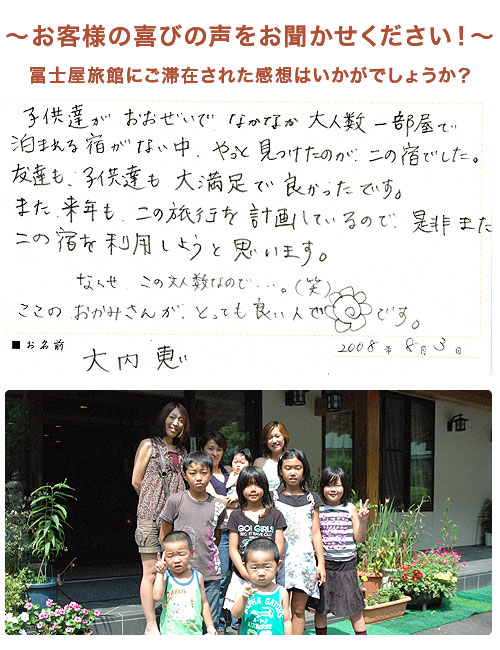 ～お客様の喜びの声をお聞かせください！～
冨士屋旅館にご滞在された感想はいかがでしょうか？
子供達が おおぜいで、なかなか 大人数 一部屋で
泊まれる宿がない中、やっと見つけたのが、この宿でした。
友達も、子供達も 大満足で 良かったです。
また、来年も、この旅行を計画しているので、是非また
この宿を利用しようと思います。
なんせ、この大人数なので…。(笑)
ここの おかみさんが、とっても良い人で です。
■お名前
大内 恵
2008年 8月 3日
GO! GIRLS